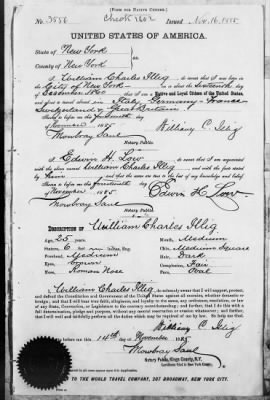 [FORM FOR NATIVE CITIZEN.]
No. 3556 Issued Nov. 16, 1885
UNITED STATES OF AMERICA.
State of New York
County of New York
I, William Charles Illig, do swear that I was born in the
City of New York, on or about the
day of
1860; that I am a Native and Loyal Citizen of the United States,
and about to travel abroad in Italy, Germany, France
Switzerland & Great Britain
Sworn to before me this fourteenth day
of November 1885
William C. Illig
Mowbray
Notary Public.
I, Edwin H. Low, do swear that I am acquainted
with the above named William Charles Illig, and with the facts
stated by him, and that the same are true to the best of my knowledge and belief.
Sworn to before me this fourteenth day
of November 1885
Edwin H. Low
Mowbray
Notary Public.
DESCRIPTION OF William Charles Illig
Age, 25 years.
Mouth, Medium
Stature, 6 feet inches, Eng.
Chin, Medium Square
Forehead, Medium
Hair, Dark
Eyes, Brown
Complexion, Fair
Nose, Roman Nose
Face, Oval
I, William Charles Illig, do solemnly swear that I will support, protect,
and defend the Constitution and Government of the United States against all enemies, whether domestic or
foreign; and that I will bear true faith, allegiance, and loyalty to the same, any ordinance, resolution, or law
of any State, Convention, or Legislature to the contrary notwithstanding; and further, that I do this with a
full determination, pledge, and purpose, without any mental reservation or evasion whatsoever; and further,
that I will well and faithfully perform all the duties which may be required of me by law. So help me God.
William C. Illig
Sworn to before me this 14th day of November 1885
Mowbray
Notary Public, Kings County, N.Y.
TO THE WORLD TRAVEL COMPANY, 207 BROADWAY, NEW YORK CITY.